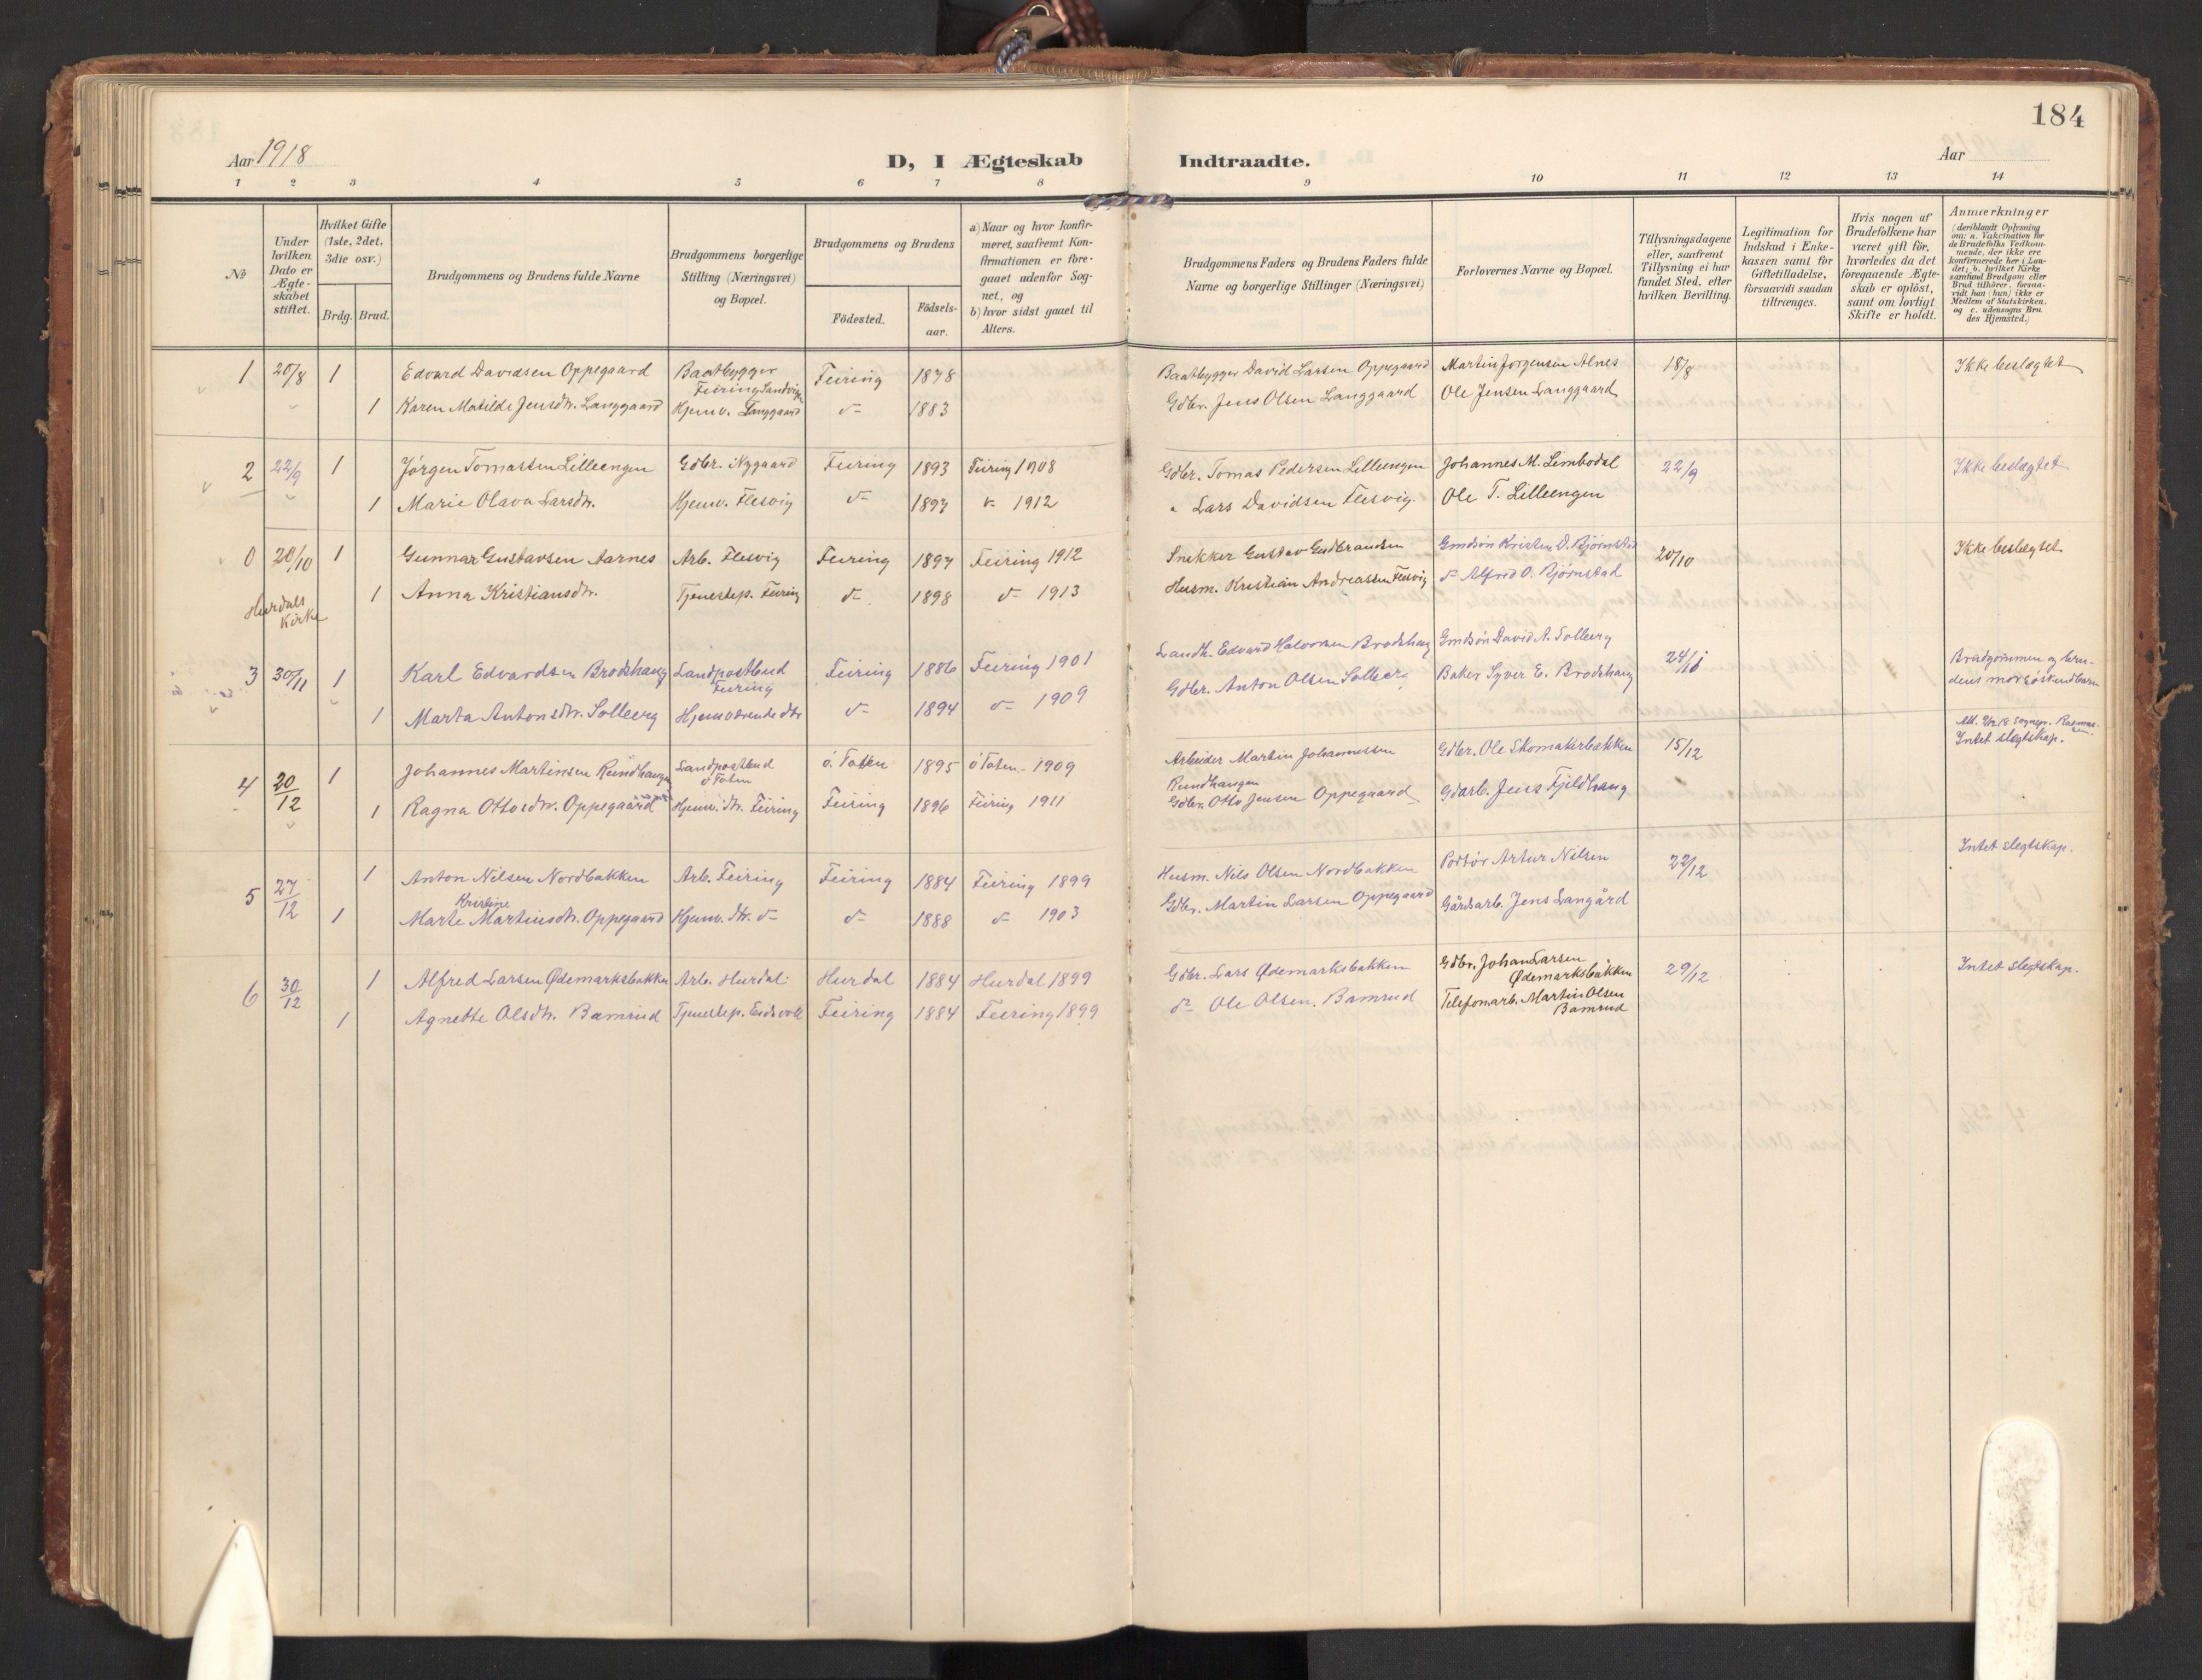 184
Aar 1918
D, I Ægteskab Indtraadte.
Aar
1 2 3 4 5 6 7 8 9 10 11 12 13 14
No
Under hvilken Dato er Ægteskabet stiftet.
Hvilket Gifte (1ste, 2det, 3die osv.)
Brdg. Brud.
Brudgommens og Brudens fulde Navne
Brudgommens borgerlige Stilling (Næringsvei) og Bopæl.
Brudgommens og Brudens
Födested.
Födselsaar.
a) Naar og hvor konfirmeret, saafremt Konfirmationen er foregaaet udenfor Sognet, og
b) hvor sidst gaaet til Alters.
Brudgommens Faders og Brudens Faders fulde Navne og borgerlige Stillinger (Næringsvei)
Forlovernes Navne og Bopæl.
Tillysningsdagene eller, saafremt Tillysning ei har fundet Sted, efter hvilken Bevilling.
Legitimation for Indskud i Enkekassen samt for Giftetilladelse, forsaavidt saadan tiltrænges.
Hvis nogen af Brudefolkene har været gift för, hvorledes da det foregaaende Ægteskab er oplöst, samt om lovligt Skifte er holdt.
Anmærkninger (deriblandt Oplysning om: a. Vakcination for de Brudefolks Vedkommende, der ikke ere konfirmerede her i Landet; b. hvilket Kirkesamfund Brudgom eller Brud tilhörer, forsaavidt han (hun) ikke er Medlem af Statskirken. og c. udensogns Brudes Hjemsted.)
1 20/8 1 Edvard Davidsen Oppegaard Baatbygger Feiring Sandvigen Feiring 1878 Baatbygger David Larsen Oppegaard Martin Jorgensen Alnes 18/8 Ikke beslægtet
1 Karen Matilde Jensdtr. Langgaard Hjemv. Langgaard d= 1883 Gdbr. Jens Olsen Langgaard Ole Jensen Langgaard
2 22/9 1 Jörgen Tomassen Lilleengen Gdbr. Nygaard Feiring 1893 Feiring 1908 Gdbr. Tomas Pedersen Lilleengen Johannes M. Limbodal 22/9 Ikke beslægtet
1 Marie Olava Larsdtr. Hjemv. Flesvig d= 1897 d= 1912 " Lars Davidsen Flesvig. Ole T. Lilleengen
0 20/10 1 Gunnar Gustavsen Aarnes Arb. Flesvig Feiring 1897 Feiring 1912 Snekker Gustav Gudbrandsen Gmdsön Kristen O. Björnstad 20/10 Ikke beslægtet
1 Anna Kristiansdtr. Tjenestep. Feiring d= 1898 d= 1913 Husm. Kristian Andreassen Flesvig d= Alfred O. Björnstad
Hurdals Kirke
3 30/11 1 Karl Edvardsen Brodshaug Landpostbud Feiring Feiring 1886 Feiring 1901 Landh. Edvard Halvorsen Brodshaug Gmdsön David A. Solberg 24/11 Brudgommen og brudens mor söskendbarn
1 Marta Antonsdtr. Solberg Hjemværende dtr d= 1894 d= 1909 Gdbr. Anton Olsen Solberg Baker Syver E. Brodshaug
4 20/12 1 Johannes Martinsen Rundhaugen Landpostbud ö Toten ö. Toten 1895 ö Toten 1909 Arbeider Martin Johannessen Rundhaugen Gdbr. Ole Skomakerbakken 15/12 Intet slegtskap.
1 Ragna Ottosdtr. Oppegaard Hjemv. dtr. Feiring Feiring 1896 Feiring 1911 Gdbr. Otto Jensen Oppegaard Gdarb. Jens Fjeldhaug
5 27/12 1 Anton Nilsen Nordbakken Arb. Feiring Feiring 1884 Feiring 1899 Husm. Nils Olsen Nordbakken Portör Artur Nilsen 22/12 Intet slegtskap.
1 Marte Kristine Martinsdtr. Oppegaard Hjemv. dtr. d= d= 1888 d= 1903 Gdbr. Martin Larsen Oppegaard Gårdsarb. Jens Langård
6 30/12 1 Alfred Larsen Ødemarksbakken Arb. Hurdal Hurdal 1884 Hurdal 1899 Gdbr. Lars Ødemarksbakken Gdbr. Johan Larsen Ødemarksbakken 29/12 Intet slegtskap.
1 Agnethe Olsdtr. Bamrud Tjenestep. Eidsvoll Feiring 1884 Feiring 1899 d= Ole Olsen Bamrud Telefonarb. Martin Olsen Bamrud